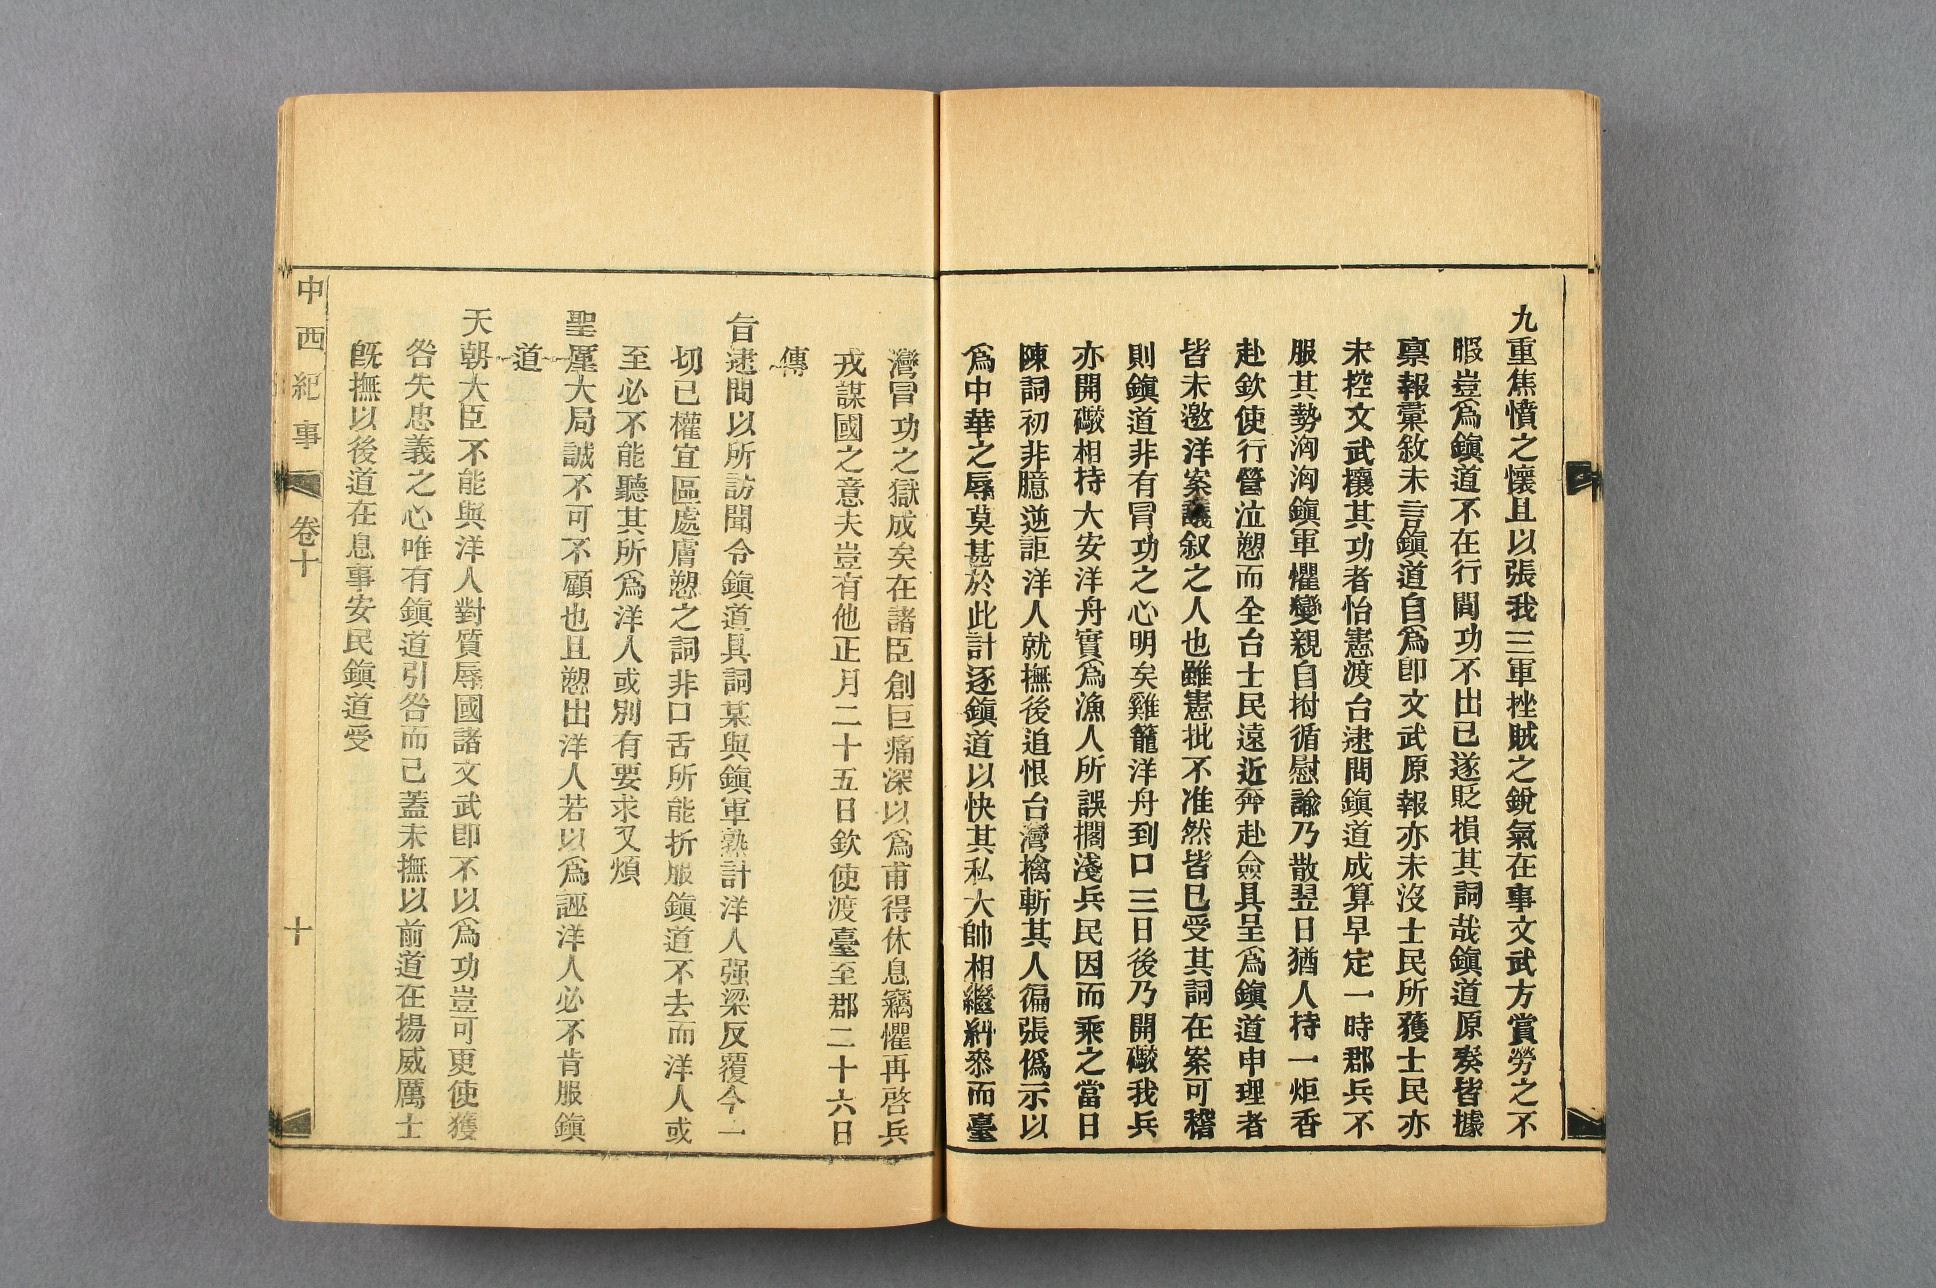 九重焦憤之懷且以張我三軍挫賊之銳氣在事文武方賞勞之不
暇豈爲鎭道不在行間功不出已遂貶損其詞哉鎭道原奏皆據
稟報彙敘未言鎭道自爲卽文武原報亦未沒士民所獲士民亦
未控文武攘其功者怡憲渡台逮問鎭道成算早定一時郡兵不
服其勢洶洶鎭軍懼變親自拊循慰諭乃散翌日猶人持一炷香
赴欽使行營泣愬而全台士民遠近奔赴僉具呈爲鎭道申理者
皆未邀洋案議叙之人也雖憲批不准然皆已受其詞在案可稽
則鎭道非有冒功之心明矣雞籠洋舟到口三日後乃開礮我兵
亦開礮相持大安洋舟實爲漁人所誤擱淺兵民因而乘之當日
陳詞初非臆逆詎洋人就撫後追恨台灣擒斬其人徧張僞示以
爲中華之辱莫甚於此計逐鎭道以快其私大帥相繼糾叅而臺
灣冒功之獄成矣在諸臣創巨痛深以爲甫得休息竊懼再啓兵
戎謀國之意夫豈有他正月二十五日欽使渡臺至郡二十六日
傳
旨逮問以所訪聞令鎭道具詞某與鎭軍熟計洋人强梁反覆今一
切已權宜區處膚愬之詞非口舌所能折服鎭道不去而洋人或
至必不能聽其所爲洋人或別有要求又煩
聖廑大局誠不可不顧也且愬出洋人若以爲誣洋人必不肯服鎭
道
天朝大臣不能與洋人對質辱國諸文武卽不以爲功豈可更使獲
咎失忠義之心唯有鎭道引咎而已蓋未撫以前道在揚威厲士
旣撫以後道在息事安民鎭道受
中西紀事 卷十 十